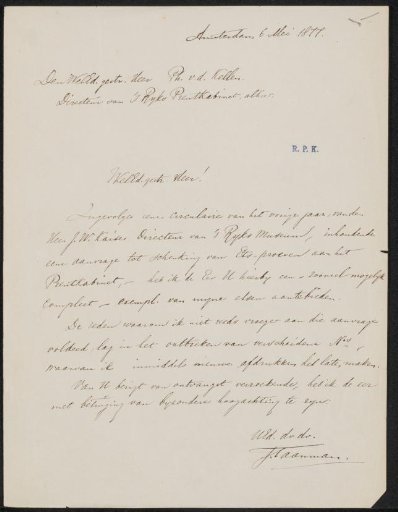 Amsterdam 6 Mei 1877.
Den WelEd. gestr. Heer Ph. v. d. Kellen
Directeur van 's Ryks Prentkabinet, alhier.
R.P.K.
WelEd. gestr. Heer!
Ingevolge eene circulaire van het vorige jaar, van den
Heer J. W. Kaiser Directeur van 's Ryks Museum, inhoudende
eene aanvrage tot schenking van Ets-proeven aan het
Prentkabinet, – heb ik de Eer U hierby een – zooveel mogelyk
compleet, – exempl. van myne etsen aantebieden.
De reden waarom ik niet reeds vroeger aan die aanvrage
voldeed, lag in het ontbreken van verscheidene Nos
waarvan ik inmiddels nieuwe afdrukken heb laten maken.
Van U berigt van ontvangst verzoekende, heb ik de eer
met betuiging van byzondere hoogachting te zyn
UEd. dv. dr.
J. Taanman.